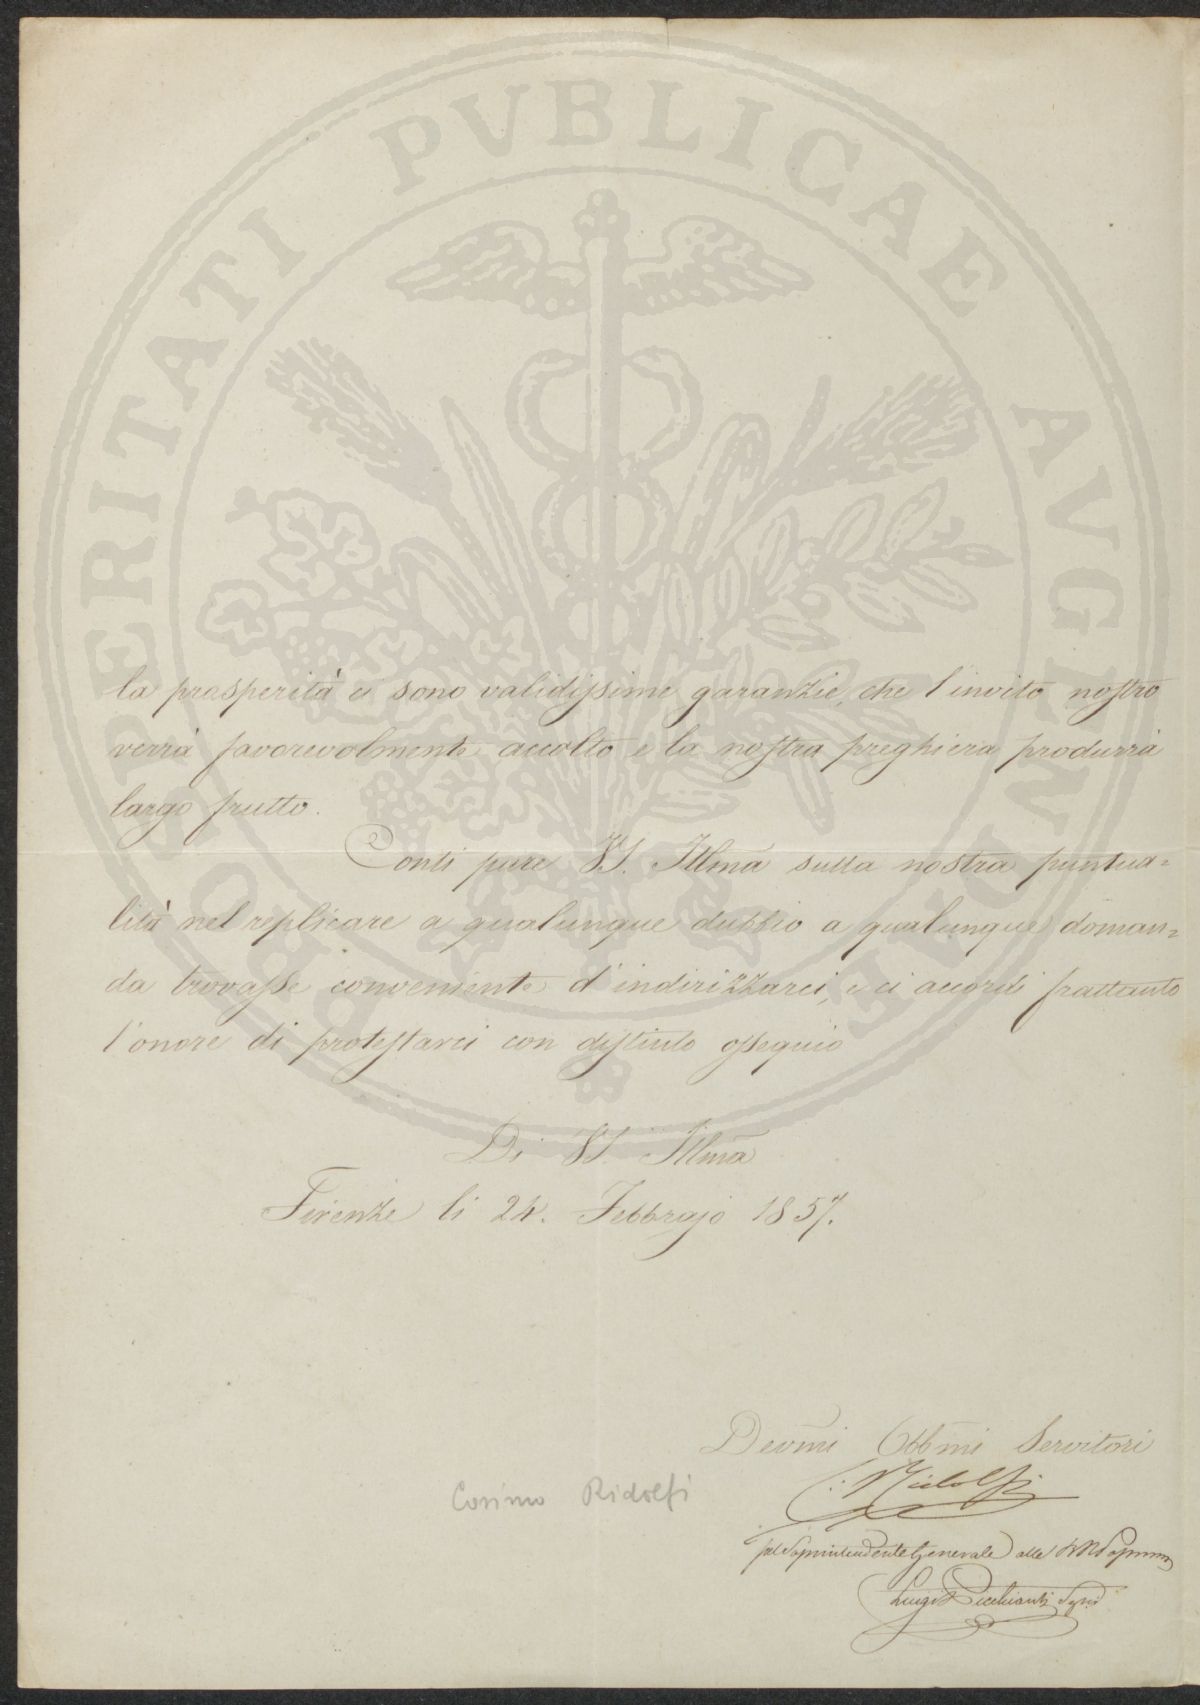 PROSPERITATI PVBLICAE AVGENDAE
la prosperità ci sono validissime garanzie, che l'invito nostro
verrà favorevolmente accolto e la nostra preghiera produrrà
largo frutto.
Conti pure VS. Illma sulla nostra puntua=
lità nel replicare a qualunque dubbio a qualunque doman=
da trovasse conveniente d'indirizzarci, e ci accordi frattanto
l'onore di protestarci con distinto ossequio
Di VS. Illma
Firenze li 24. Febbrajo 1857.
Devmi Obbmi Servitori
C: Ridolfi
Cosimo Ridolfi
pel Soprintendente Generale alle
Luigi Picchianti Segrio